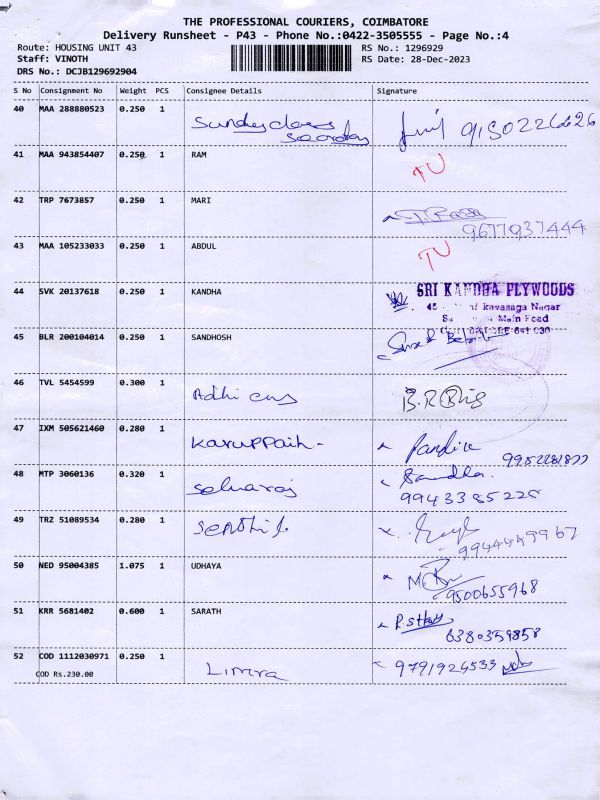 THE PROFESSIONAL COURIERS, COIMBATORE
Delivery Runsheet - P43 - Phone No.:0422-3505555 - Page No.:4
Route: HOUSING UNIT 43 RS No.: 1296929
Staff: VINOTH RS Date: 28-Dec-2023
DRS No.: DCJB129692904
S No Consignment No Weight PCS Consignee Details Signature
40 MAA 288880523 0.250 1
41 MAA 943854407 0.250 1 RAM TU
42 TRP 7673857 0.250 1 MARI
9677937444
43 MAA 105233033 0.250 1 ABDUL TU
44 SVK 20137618 0.250 1 KANDHA SRI KANDHA PLYWOODS
Main Road
45 BLR 200104014 0.250 1 SANDHOSH
46 TVL 5454599 0.300 1
47 IXM 505621460 0.280 1 Karuppaih
48 MTP 3060136 0.320 1 Selvaraj
9943385228
49 TRZ 51089534 0.280 1 Senthil
9944449967
50 NED 95004385 1.075 1 UDHAYA
9500655968
51 KRR 5681402 0.600 1 SARATH
6380359858
52 COD 1112030971 0.250 1 Limra 9791924533
COD Rs.230.00